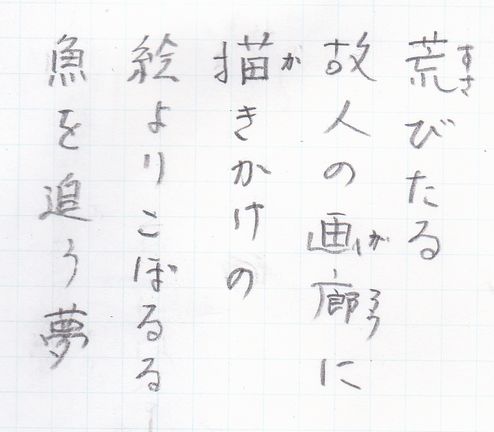 荒びたる
故人の画廊に
描きかけの
絵よりこぼるる
魚を追う夢